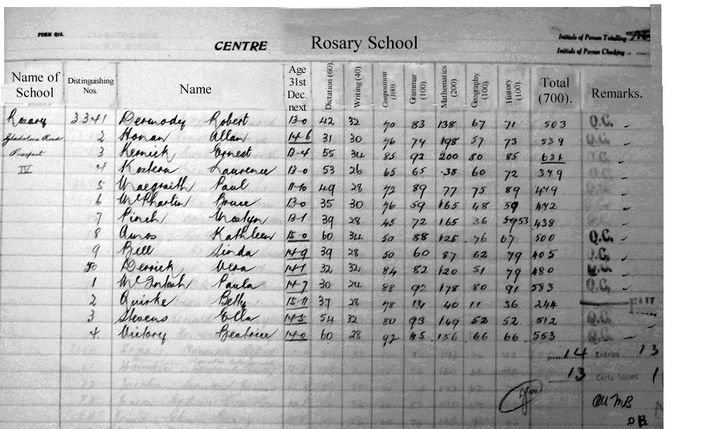 FORM Q18.
CENTRE Rosary School
Initials of Person Totalling
Initials of Person Checking
Name of School Distinguishing Nos. Name Age 31st Dec. next Dictation (60) Writing (40) Composition (100) Grammar (100) Mathematics (200) Geography (100) History (100) Total (700). Remarks.
Rosary 3341 Dermody Robert 13-0 42 32 70 83 138 67 71 503 Q.C.
Gladstone Road 2 Honan Allan 14-6 31 30 76 74 198 57 73 539 Q.C.
Prospect 3 Kernick Ernest 13-4 55 34 85 92 200 80 85 631 Q.C.
IV 4 Laurence 13-0 53 26 65 65 38 60 72 379 Q.C.
5 Paul 11-10 49 28 72 89 77 75 89 479 Q.C.
6 Bruce 13-0 35 30 76 59 165 48 59 472 Q.C.
7 Mostyn 13-1 39 28 45 72 165 36 53 438 Q.C.
8 Kathleen 15-0 60 34 50 88 125 76 67 500 Q.C.
9 Bell Linda 14-9 39 28 50 60 87 62 79 405 Q.C.
50 Derrick Vera 14-1 32 32 84 82 120 51 79 480 Q.C.
1 McIntosh Paula 14-7 30 24 88 92 178 80 91 583 Q.C.
2 Quirke Betty 15-11 37 28 78 14 40 11 36 244
3 Stevens Ella 14-5 54 32 80 93 149 52 52 512 Q.C.
4. Victory Beatrice 14-0 60 28 92 85 156 66 66 553 Q.C.
14 Entries 13
13 Certs Issued